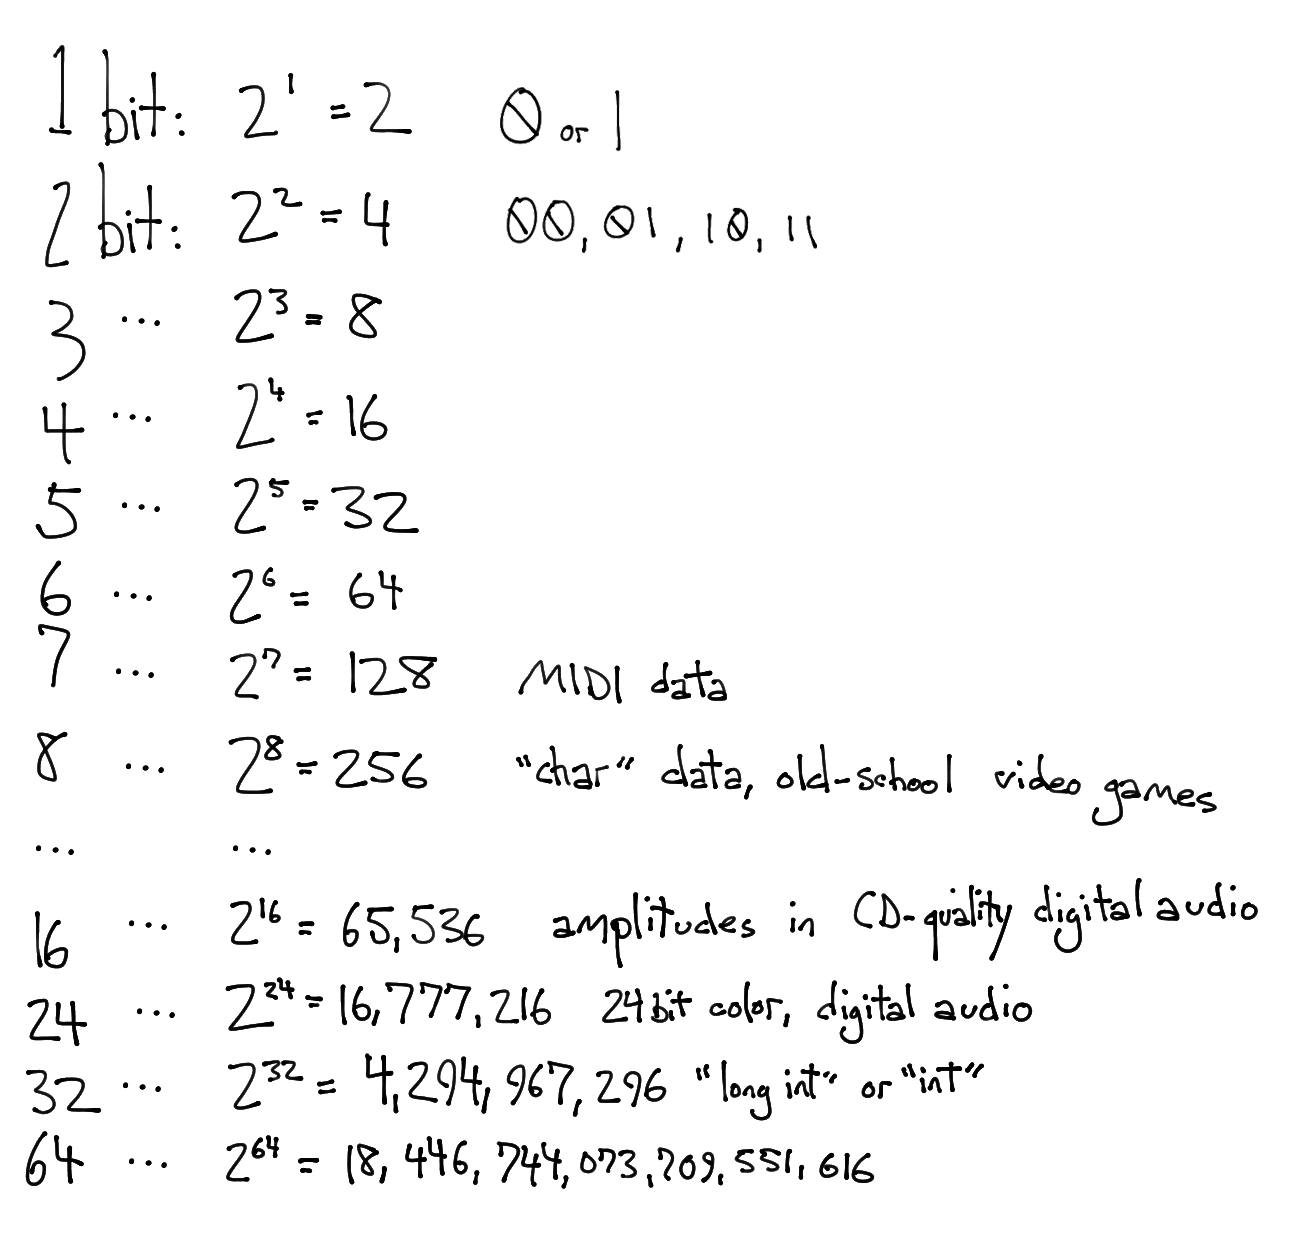 1 bit: 2¹ = 2 0 or 1
2 bit: 2² = 4 00, 01, 10, 11
3 ... 2³ = 8
4 ... 2⁴ = 16
5 ... 2⁵ = 32
6 ... 2⁶ = 64
7 ... 2⁷ = 128 MIDI data
8 ... 2⁸ = 256 "char" data, old-school video games
... ...
16 ... 2¹⁶ = 65,536 amplitudes in CD-quality digital audio
24 ... 2²⁴ = 16,777,216 24 bit color, digital audio
32 ... 2³² = 4,294,967,296 "long int" or "int"
64 ... 2⁶⁴ = 18,446,744,073,709,551,616